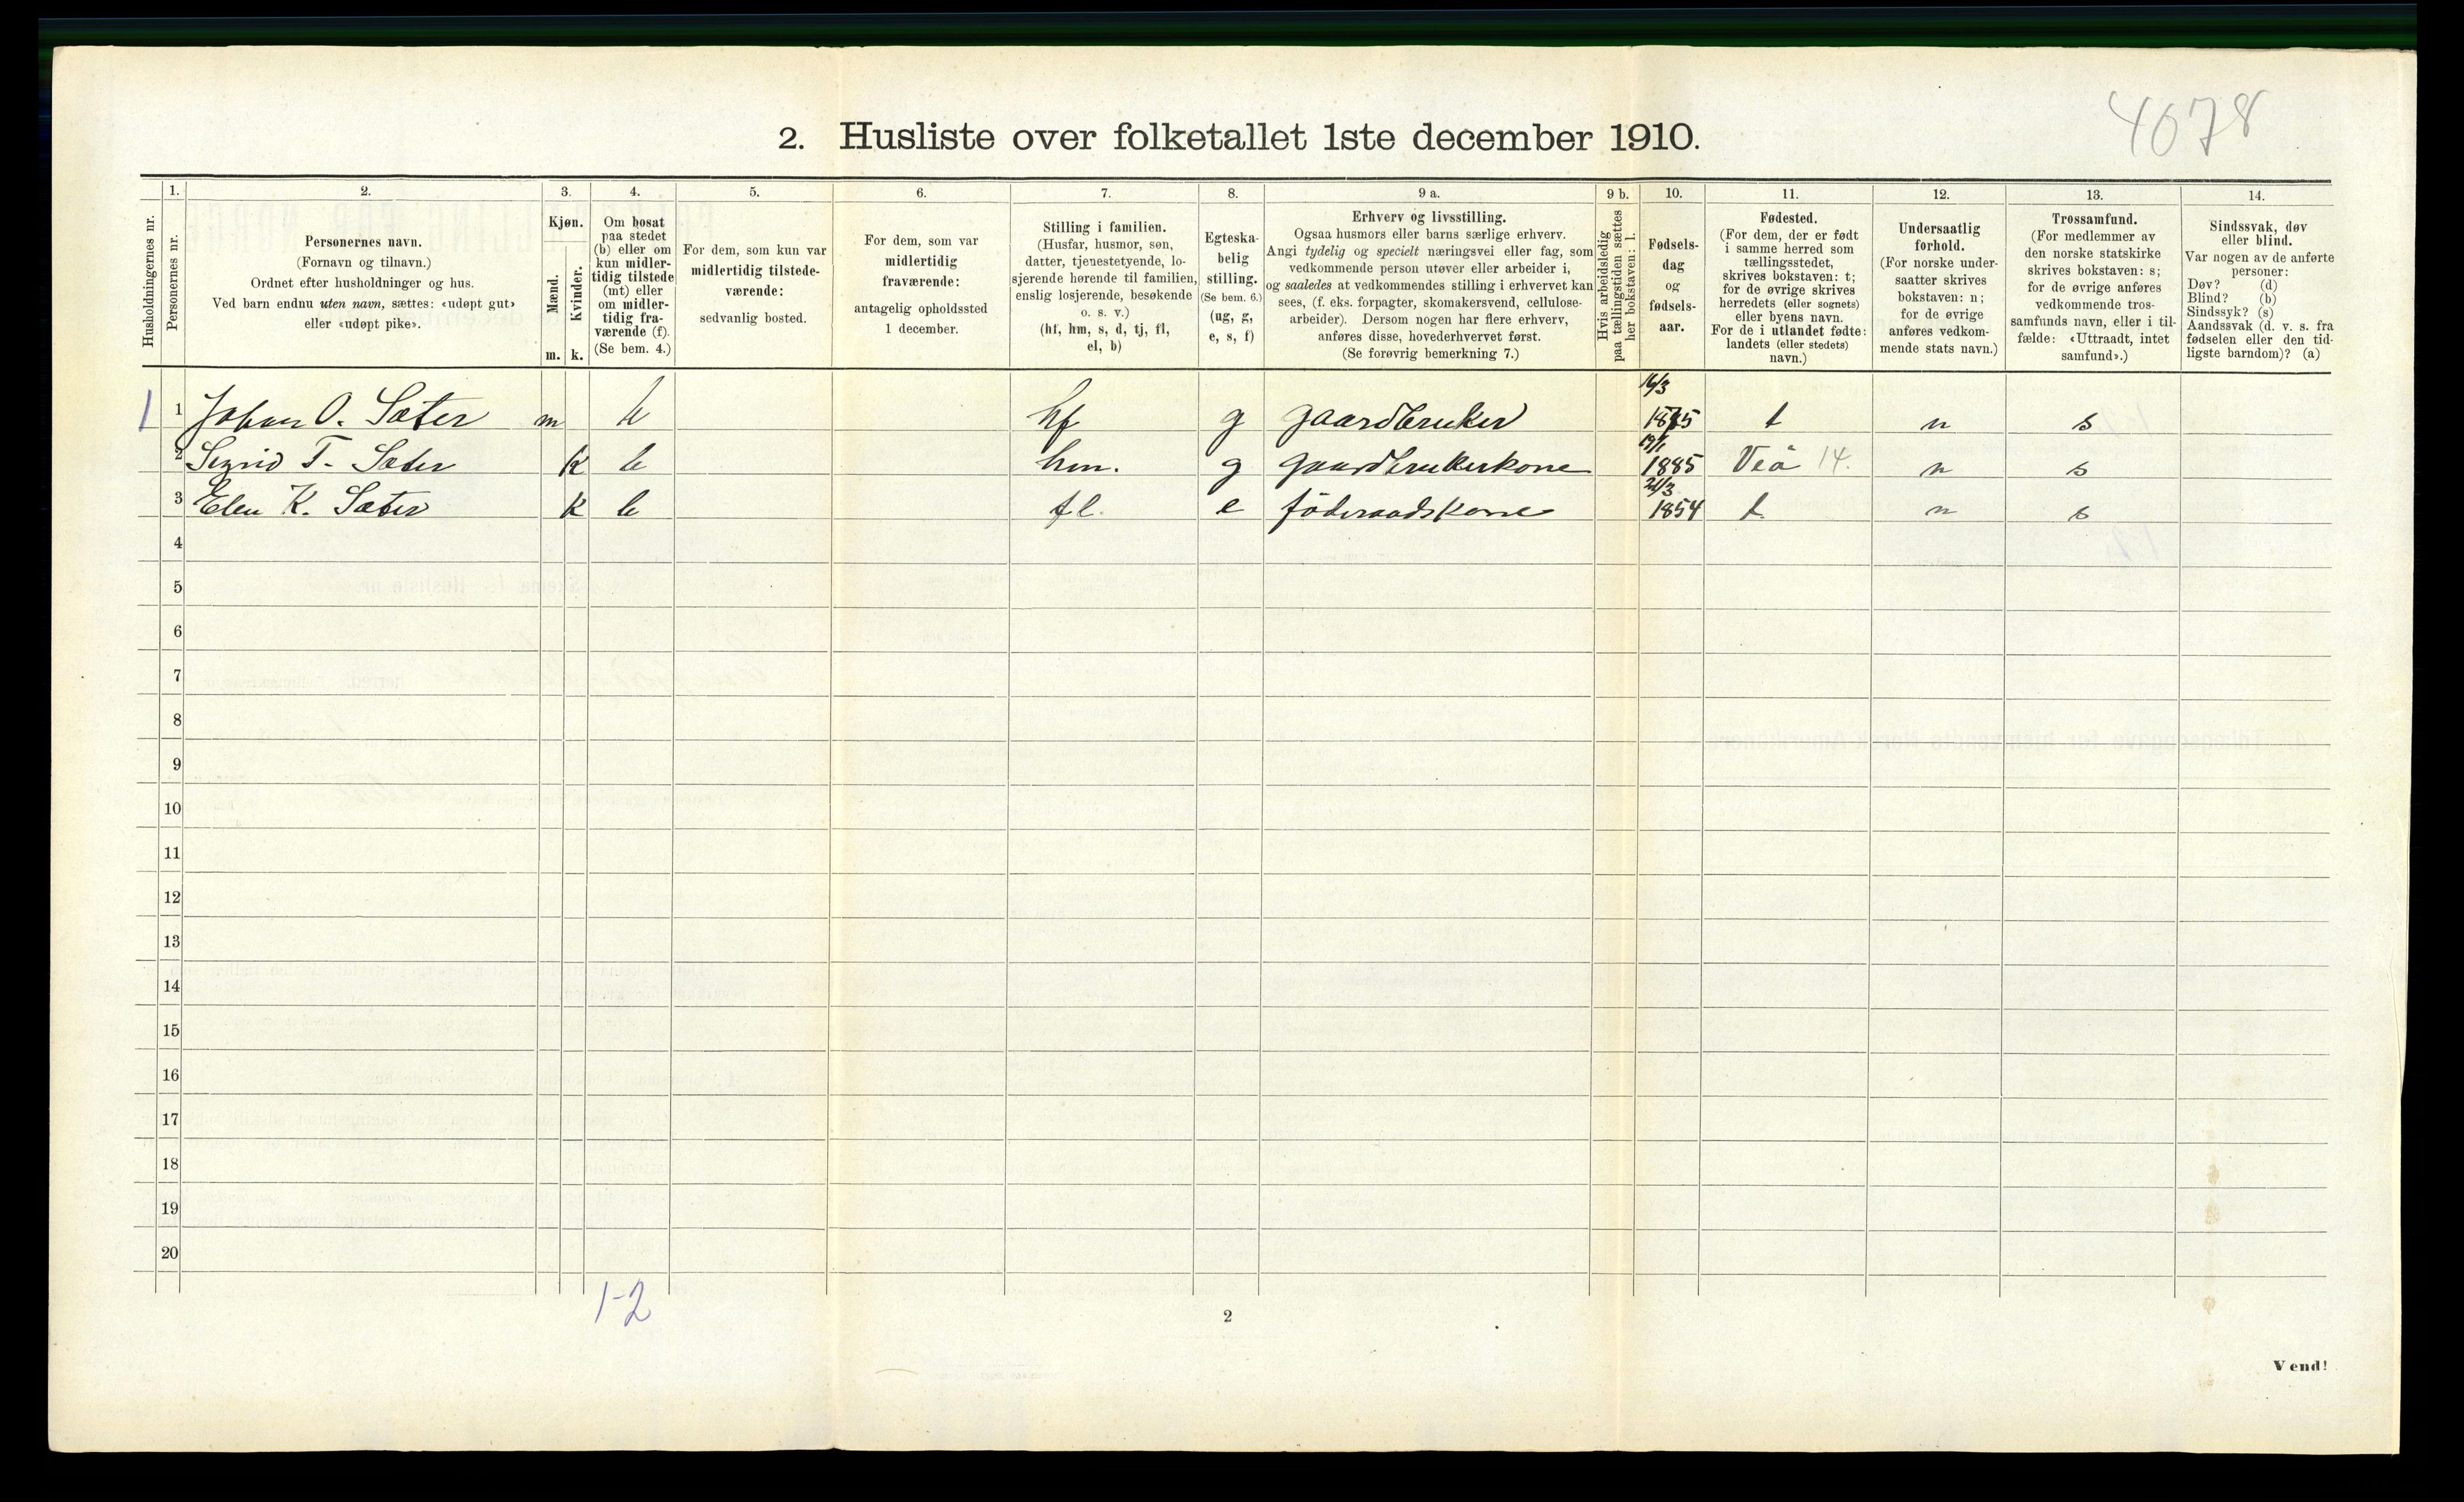 4078
2. Husliste over folketallet 1ste december 1910.
Husholdningernes nr.
1.
Personernes nr.
2.
Personernes navn.
(Fornavn og tilnavn.)
Ordnet efter husholdninger og hus.
Ved barn endnu uten navn, sættes: «udøpt gut»
eller «udøpt pike».
3.
Kjøn.
Mænd.
Kvinder.
m. k.
4.
Om bosat
paa stedet
(b) eller om
kun midler-
tidig tilstede
(mt) eller
om midler-
tidig fra-
værende (f).
(Se bem. 4.)
5.
For dem, som kun var
midlertidig tilstede-
værende:
sedvanlig bosted.
6.
For dem, som var
midlertidig
fraværende:
antagelig opholdssted
1 december.
7.
Stilling i familien.
(Husfar, husmor, søn,
datter, tjenestetyende, lo-
sjerende hørende til familien,
enslig losjerende, besøkende
o. s. v.)
(hf, hm, s, d, tj, fl,
el, b)
8.
Egteska-
belig
stilling.
(Se bem. 6.)
(ug, g,
e, s, f)
9 a.
Erhverv og livsstilling.
Ogsaa husmors eller barns særlige erhverv.
Angi tydelig og specielt næringsvei eller fag, som
vedkommende person utøver eller arbeider i,
og saaledes at vedkommendes stilling i erhvervet kan
sees, (f. eks. forpagter, skomakersvend, cellulose-
arbeider). Dersom nogen har flere erhverv,
anføres disse, hovederhvervet først.
(Se forøvrig bemerkning 7.)
9 b.
Hvis arbeidsledig
paa tællingstiden sættes
her bokstaven: l.
10.
Fødsels-
dag
og
fødsels-
aar.
11.
Fødested.
(For dem, der er født
i samme herred som
tællingsstedet,
skrives bokstaven: t;
for de øvrige skrives
herredets (eller sognets)
eller byens navn.
For de i utlandet fødte:
landets (eller stedets)
navn.)
12.
Undersaatlig
forhold.
(For norske under-
saatter skrives
bokstaven: n;
for de øvrige
anføres vedkom-
mende stats navn.)
13.
Trossamfund.
(For medlemmer av
den norske statskirke
skrives bokstaven: s;
for de øvrige anføres
vedkommende tros-
samfunds navn, eller i til-
fælde: «Uttraadt, intet
samfund».)
14.
Sindssvak, døv
eller blind.
Var nogen av de anførte
personer:
Døv? (d)
Blind? (b)
Sindssyk? (s)
Aandssvak (d. v. s. fra
fødselen eller den tid-
ligste barndom)? (a)
16/3
1 1 Johan O. Sæter m b hf g gaardbruker t n s
19/1
2 Sigrid T. Sæter k b hm. g gaardbrukerkone 1885 Veö 14. n s
21/3
3 Elen K. Sæter k b fl. e föderaadskone 1854 t. n s
4
5
6
7
8
9
10
11
12
13
14
15
16
17
18
19
20
1-2
2
Vend!